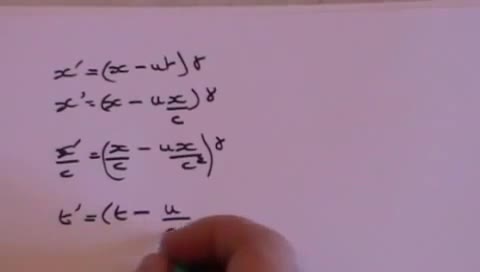 x' = (x - ut) γ
x' = (x - u x/c) γ
x'/c = (x/c - ux/c²) γ
t' = (t - u